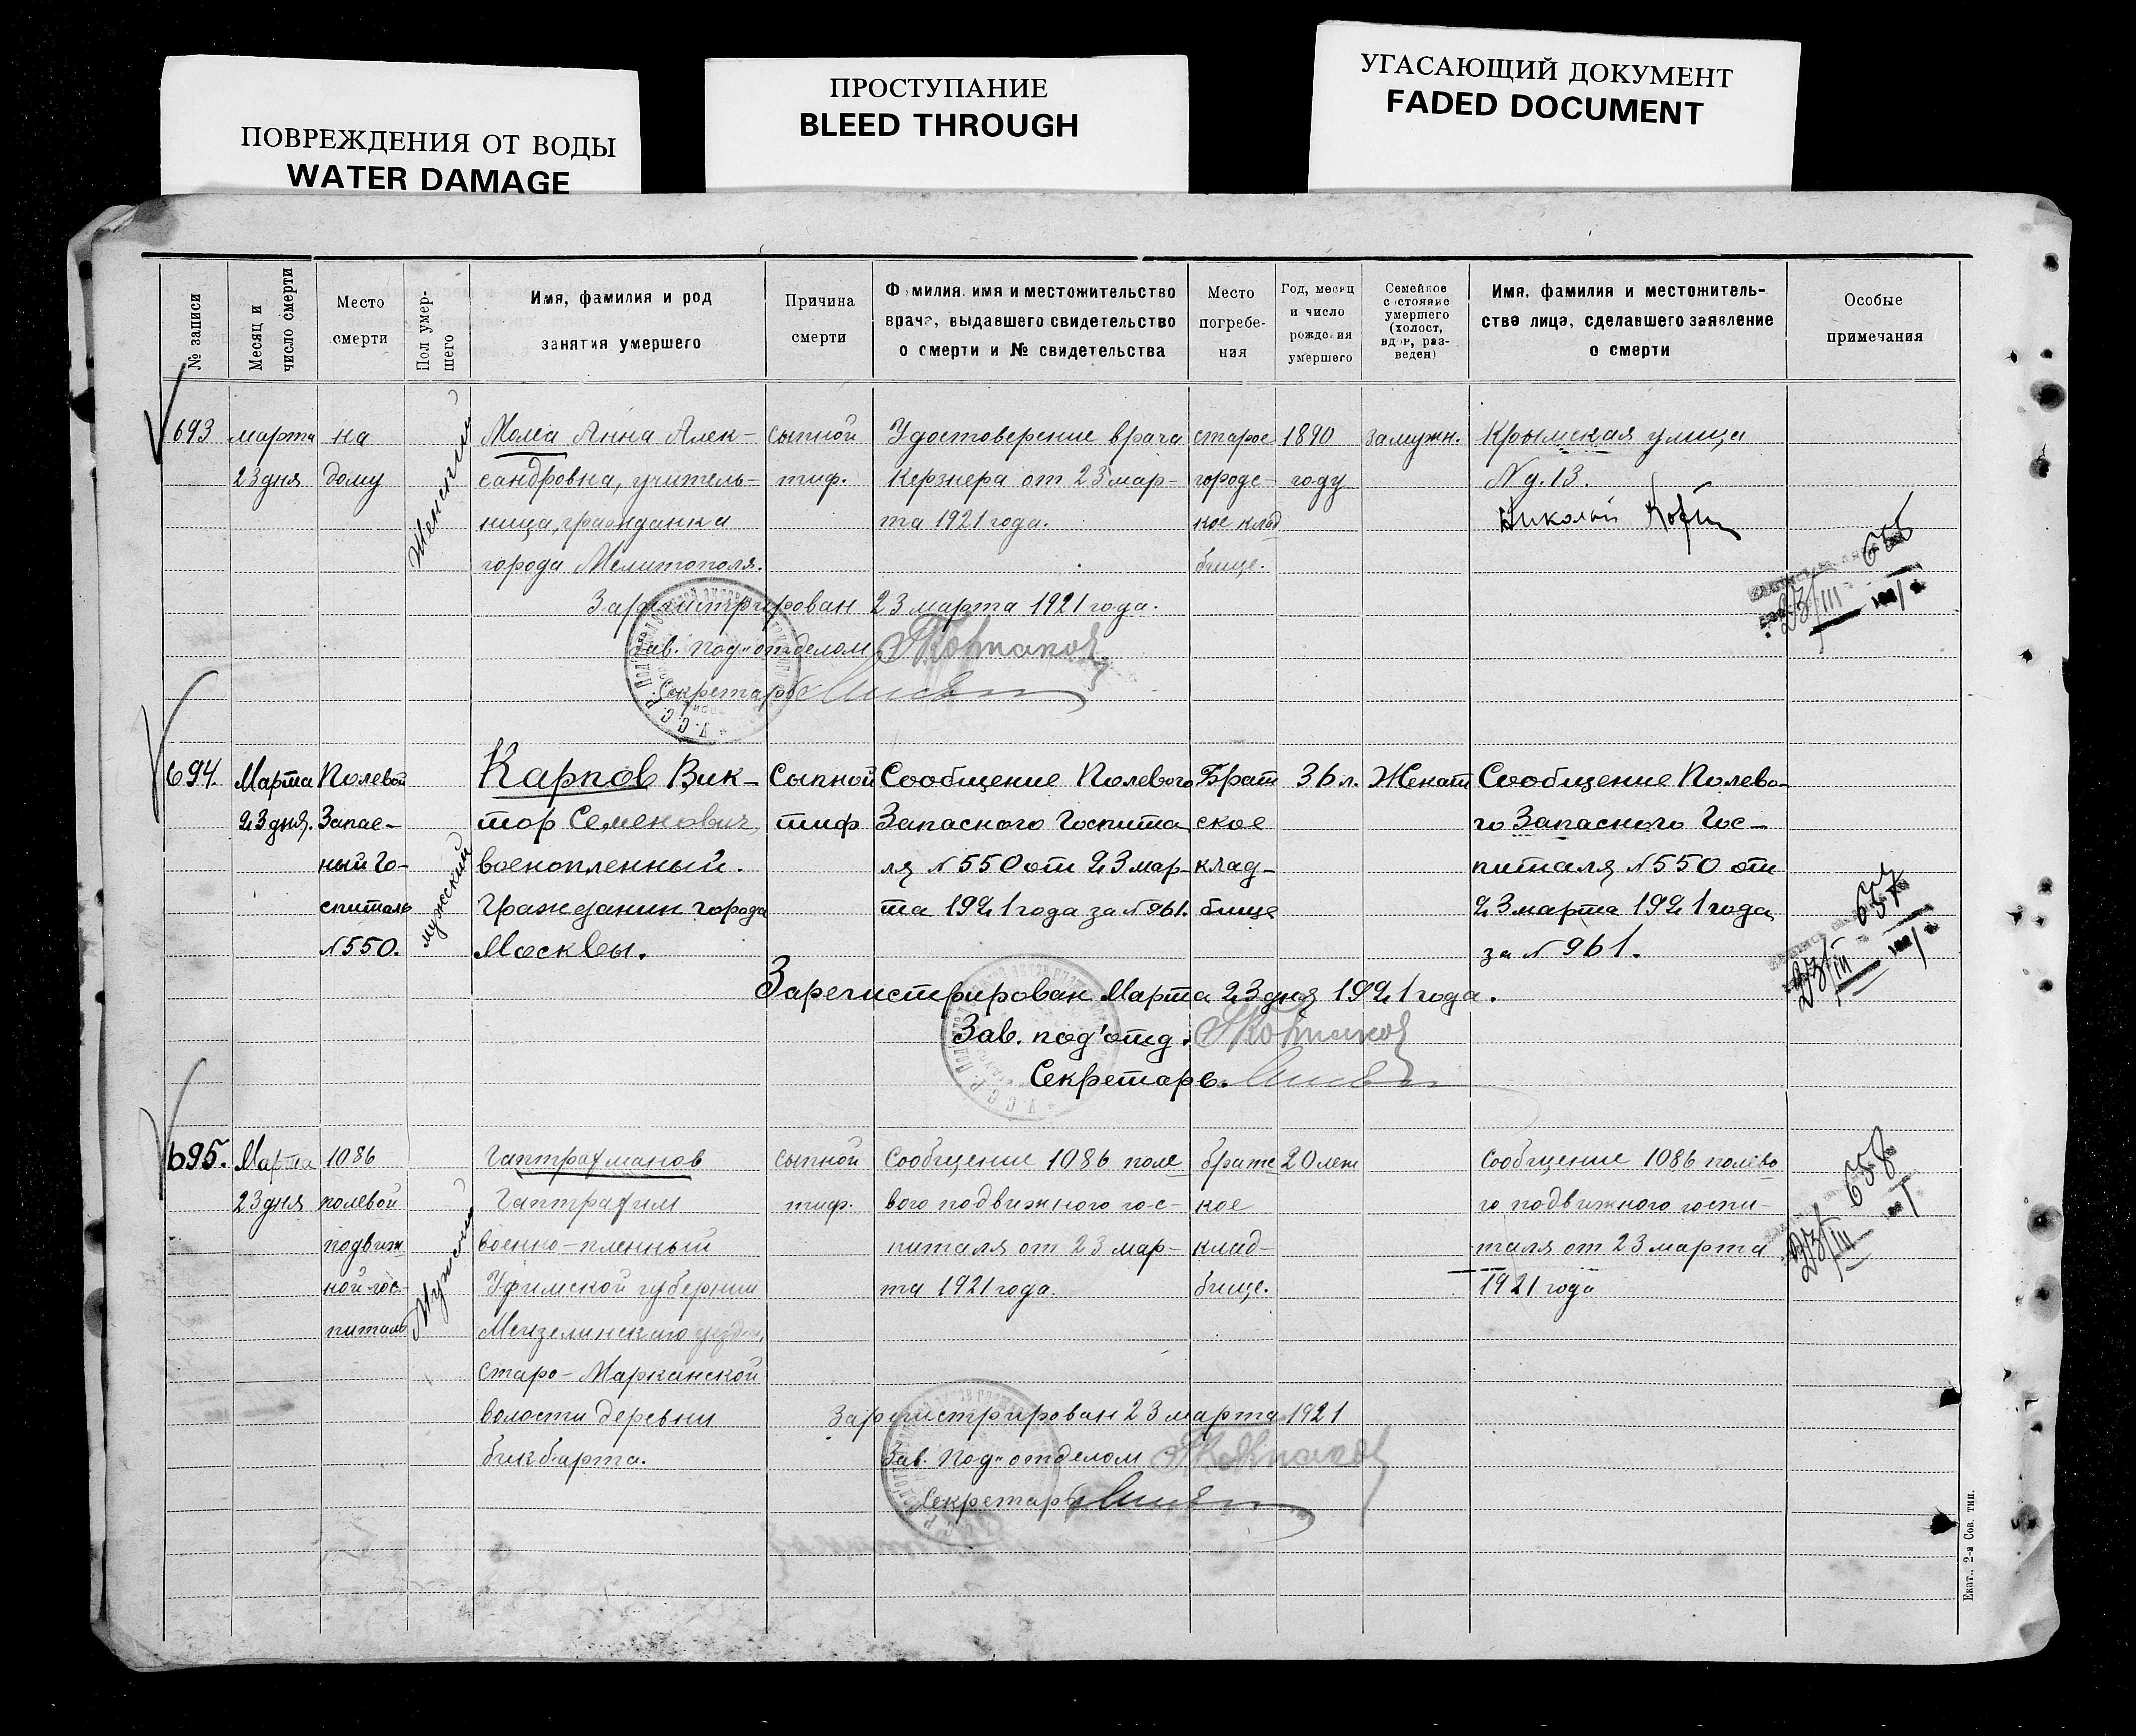 ПОВРЕЖДЕНИЯ ОТ ВОДЫ
WATER DAMAGE
ПРОСТУПАНИЕ
BLEED THROUGH
УГАСАЮЩИЙ ДОКУМЕНТ
FADED DOCUMENT
№ записи
Месяц и
число смерти
Место
смерти
Пол умер-
шего
Имя, фамилия и род
занятия умершего
Причина
смерти
Фамилия, имя и местожительство
врача, выдавшего свидетельство
о смерти и № свидетельства
Место
погребе-
ния
Год, месяц
и число
рождения
умершего
Семейное
состояние
умершего
(холост,
вдов, раз-
веден)
Имя, фамилия и местожитель-
ства лица, сделавшего заявление
о смерти
Особые
примечания
693
марта
23 дня
на
дому
Женский
Анна Алек-
сандровна, учитель-
ница, гражданка
города Мелитополя.
сыпной
тиф.
Удостоверение врача
Кержнера от 23 мар-
та 1921 года.
старое
городс-
кое клад
бище.
1890
году
замужн.
Крымская улица
N д. 13.
Николай
656
23/III
Зарегистрирован 23 марта 1921 года.
Зав. Под"отделом
Секретарь
694.
Марта
23 дня.
Полевой
Запас-
ный Го-
спиталь
N 550.
мужеский
Карпов Вик-
тор Семенович,
военопленный.
Гражданин города
Москвы.
Сыпной
тиф
Сообщение Полевого
Запасного Госпита
ля N 550 от 23 мар-
та 1921 года за N 961.
Брат
ское
клад-
бище
36 л.
Женат
Сообщение Полево-
го Запасного Гос-
питаля N 550 от
23 марта 1921 года,
за N 961.
657
23/III
Зарегистрирован Марта 23 дня 1921 года.
Зав. под'отд.
Секретарь.
695.
Марта
23 дня
1086
полевой
подвиж
ной гос-
питаль
Мужской
Гаптрахманов
Гаптрахим
военно-пленный
Уфимской губернии
Мензелинского уезда,
Старо-Марканской
волости деревни
бикбарта.
сыпной
тиф.
Сообщение 1086 поле
вого подвижного гос-
питаля от 23 мар-
та 1921 года.
братс
кое
клад-
бище.
20 лет
Сообщение 1086 полево
го подвижного госпи-
таля от 23 марта
1921 года
658
23/III
Зарегистрирован 23 марта 1921
Зав. Под"отделом
Секретарь
Екат., 2-я Сов. тип.